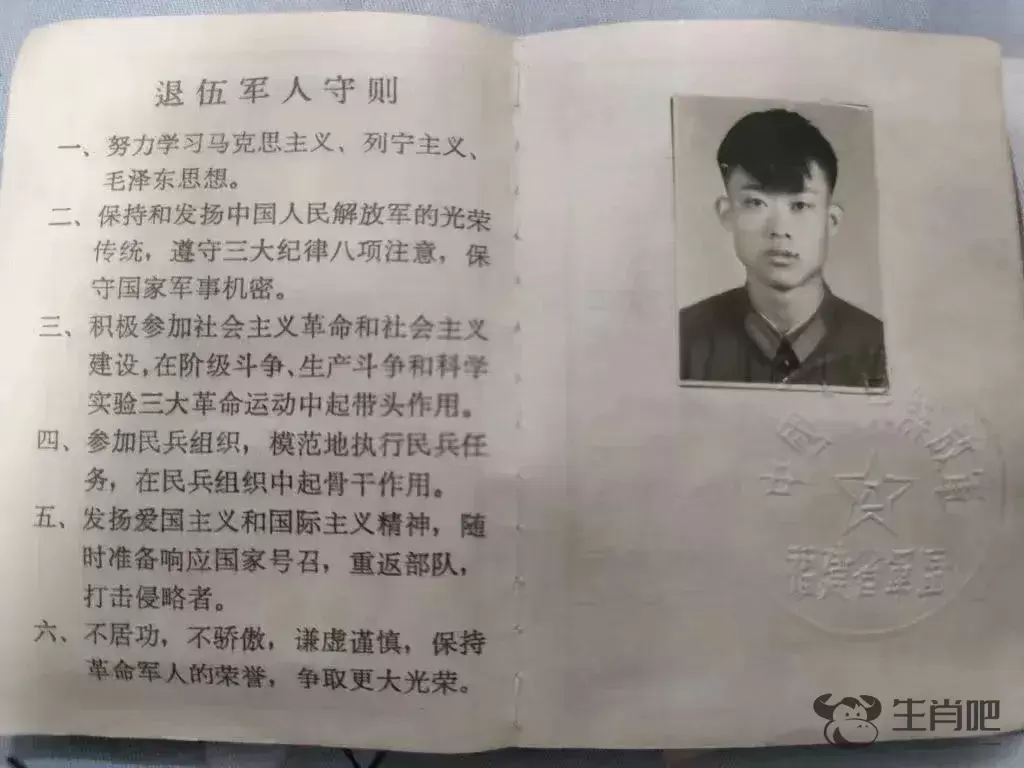 退伍军人守则
一、努力学习马克思主义、列宁主义、
毛泽东思想。
二、保持和发扬中国人民解放军的光荣
传统，遵守三大纪律八项注意，保
守国家军事机密。
三、积极参加社会主义革命和社会主义
建设，在阶级斗争、生产斗争和科学
实验三大革命运动中起带头作用。
四、参加民兵组织，模范地执行民兵任
务，在民兵组织中起骨干作用。
五、发扬爱国主义和国际主义精神，随
时准备响应国家号召，重返部队，
打击侵略者。
六、不居功，不骄傲，谦虚谨慎，保持
革命军人的荣誉，争取更大光荣。
八一
省军区
生肖吧